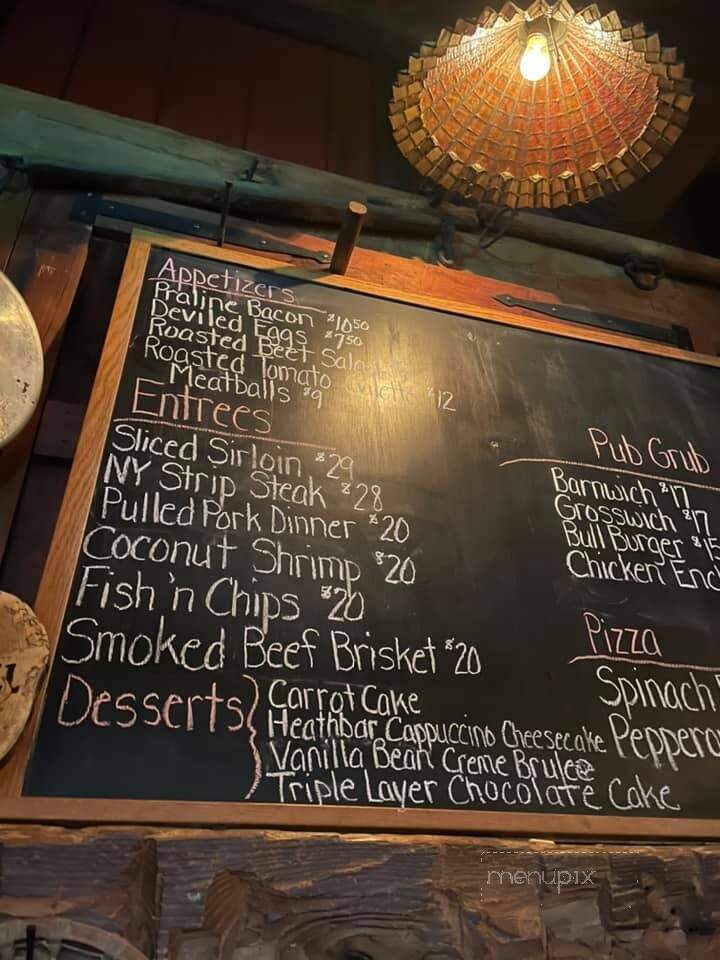 Appetizers
Praline Bacon $10.50
Deviled Eggs $7.50
Roasted Beet
Roasted Tomato $12
Meatballs $9
Entrees
Sliced Sirloin $29
NY Strip Steak $28
Pulled Pork Dinner $20
Coconut Shrimp $20
Fish 'n Chips $20
Smoked Beef Brisket $20
Desserts
Carrot Cake
Heathbar Cappuccino Cheesecake
Vanilla Bean Creme Brulee
Triple Layer Chocolate Cake
Pub Grub
Barnwich $17
Grosswich $17
Bull Burger $15
Chicken
Pizza
Spinach
menupix